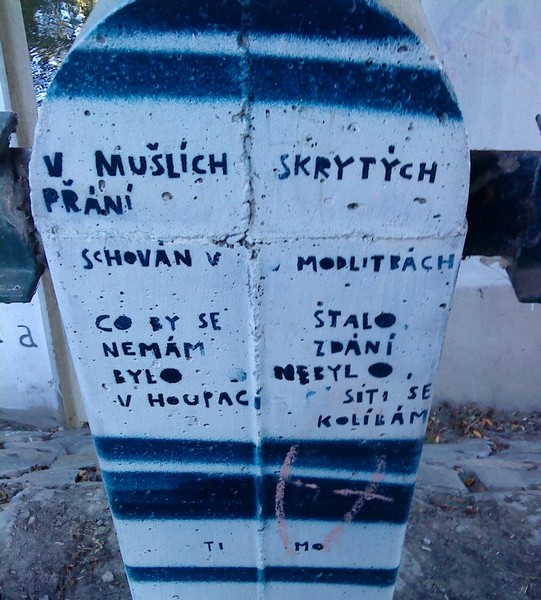 V MUŠLÍCH SKRYTÝCH
PŘÁNÍ
SCHOVÁN V MODLITBÁCH
CO BY SE STALO,
NEMÁM ZDÁNÍ
BYLO NEBYLO,
V HOUPACÍ SÍTI SE
KOLÍBÁM
TI MO
a